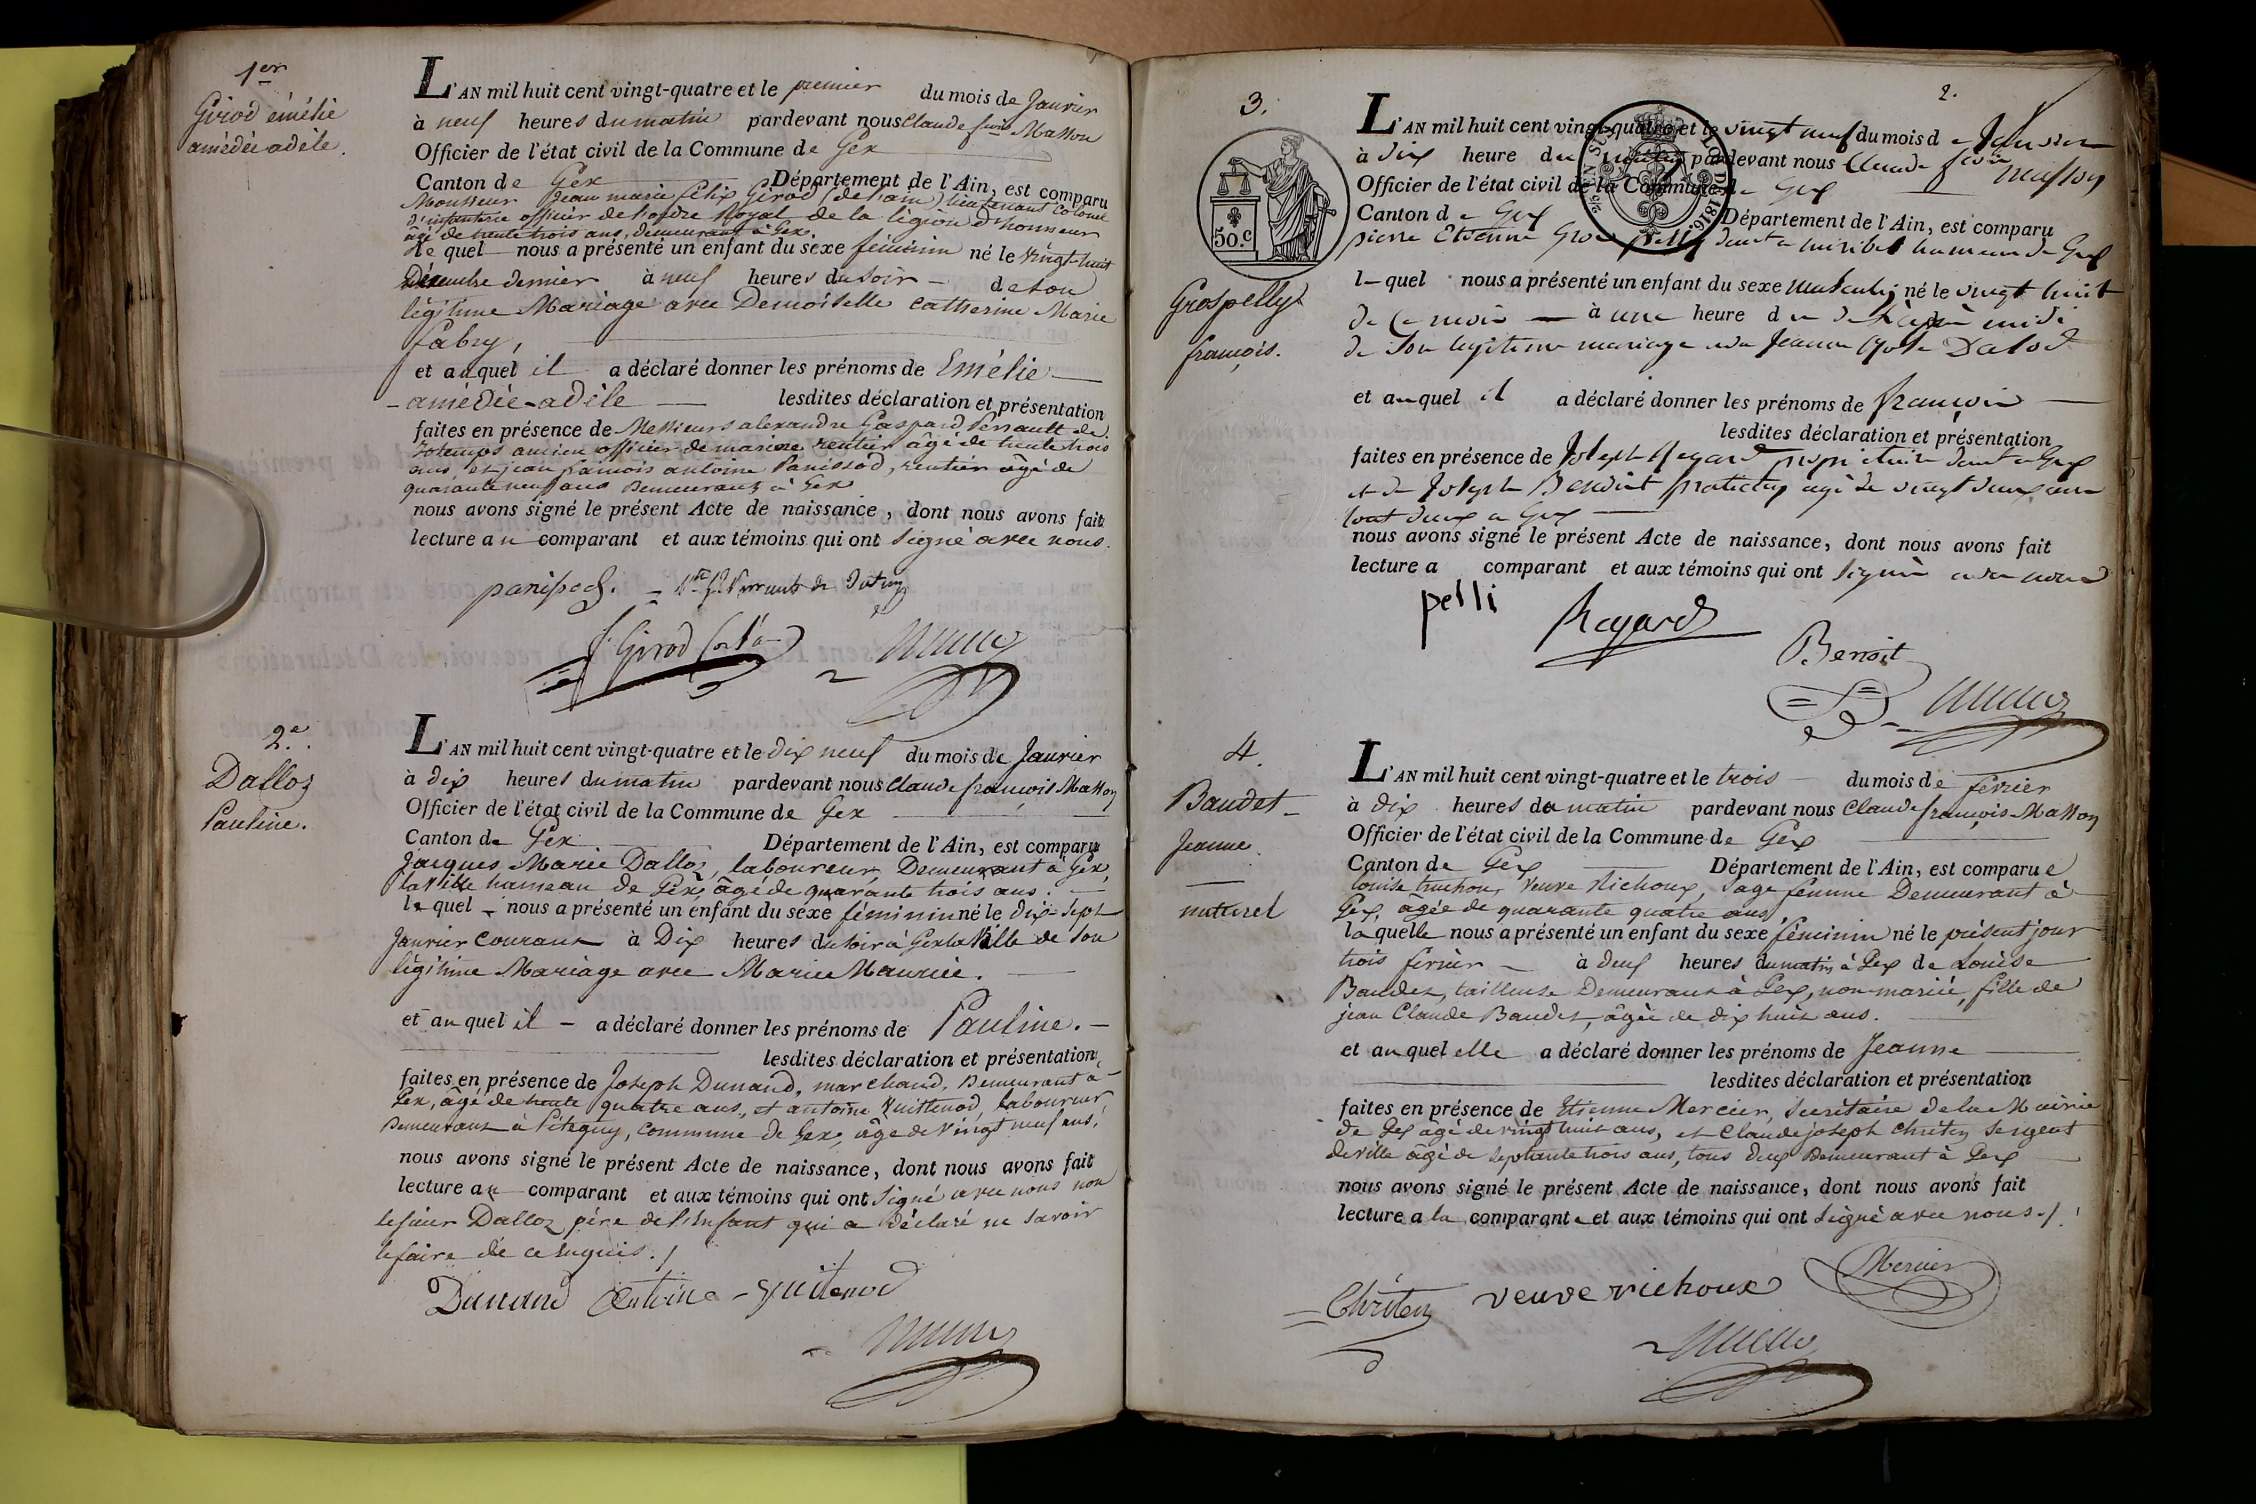 1er
Girod émélie
amédée adèle.
L'AN mil huit cent vingt-quatre et le premier du mois de Janvier
à neuf heures du matin pardevant nous Claude fois Masson
Officier de l'état civil de la Commune de Gex
Canton de Gex Département de l'Ain, est comparu
Monsieur Jean marie félix Girod (de l'ain) lieutenant Colonel
d'infanterie officier de l'ordre Royal de la légion d'honneur
âgé de trente trois ans, demeurant à Gex.
le quel nous a présenté un enfant du sexe féminin né le vingt-huit
Décembre dernier à neuf heures du soir – de son
légitime Mariage avec Demoiselle Catherine Marie
fabry,
et au quel il a déclaré donner les prénoms de Emélie –
– amédée-adèle – lesdites déclaration et présentation
faites en présence de Messieurs alexandre Gaspard Perrault de
Jotemps ancien officier de marine, rentier âgé de trente trois
ans, et jean françois antoine Panissod, rentier âgé de
quarante neuf ans Demeurant à Gex
nous avons signé le présent Acte de naissance, dont nous avons fait
lecture au comparant et aux témoins qui ont signé avec nous.
panissod.
Girod
2e.
Dalloz
Pauline.
L'AN mil huit cent vingt-quatre et le dix neuf du mois de Janvier
à dix heures du matin pardevant nous Claude françois Masson
Officier de l'état civil de la Commune de Gex
Canton de Gex Département de l'Ain, est comparu
Jacques Marie Dalloz, laboureur Demeurant à Gex,
la Ville hameau de Gex, âgé de quarante trois ans.
le quel – nous a présenté un enfant du sexe féminin né le dix-sept
Janvier Courant à Dix heures du soir à Gex la Ville de son
légitime Mariage avec Marie Maurice.
et au quel il – a déclaré donner les prénoms de Pauline. –
lesdites déclaration et présentation
faites en présence de Joseph Dunand, marchand, Demeurant à
Gex, âgé de trente quatre ans, et antoine Vuittenod, laboureur
Demeurant à Pitegny, Commune de Gex, âgé de vingt neuf ans,
nous avons signé le présent Acte de naissance, dont nous avons fait
lecture au comparant et aux témoins qui ont signé avec nous non
le sieur Dalloz père de l'Enfant qui a déclaré ne savoir
le faire de ce enquis./
Dunand Antoine
2.
3.
50.c
1816.
Grospelly
françois.
L'AN mil huit cent vingt-quatre et le vingt neuf du mois de Janvier
à dix heure du matin pardevant nous Claude fcois Masson
Officier de l'état civil de la Commune de Gex
Canton de Gex Département de l'Ain, est comparu
pierre Etienne Gros pelly à miribel hameau de Gex
l–quel nous a présenté un enfant du sexe masculin né le vingt huit
de ce mois – à une heure du midi
de son legitime mariage avec Jeanne Dalod
et au quel il a déclaré donner les prénoms de françois
lesdites déclaration et présentation
faites en présence de Joseph Regard propriétaire à Gex
et de Joseph Benoit praticien agé de vingt deux ans
tout deux a Gex
nous avons signé le présent Acte de naissance, dont nous avons fait
lecture a comparant et aux témoins qui ont signé avec nous
pelli
Regard
Benoit
4.
Baudet
Jeanne
naturel
L'AN mil huit cent vingt-quatre et le trois du mois de février
à dix heures du matin pardevant nous Claude françois Masson
Officier de l'état civil de la Commune de Gex
Canton de Gex Département de l'Ain, est comparue
louise truchon, Veuve Richoux, Sage femme Demeurant à
Gex, âgée de quarante quatre ans,
laquelle nous a présenté un enfant du sexe féminin né le présent jour
trois février – à deux heures du matin à Gex de Louise
Baudet, tailleuse Demeurant à Gex, non mariée, fille de
jean Claude Baudet, âgée de dix huit ans.
et au quel elle a déclaré donner les prénoms de Jeanne
lesdites déclaration et présentation
faites en présence de Etienne Mercier, Secrétaire de la Mairie
de Gex âgé de vingt huit ans, et Claude joseph Chréten Sergent
de ville âgé de Septante trois ans, tous deux Demeurant à Gex
nous avons signé le présent Acte de naissance, dont nous avons fait
lecture a la comparante et aux témoins qui ont signé avec nous./.
Mercier
Chréten veuve richoux